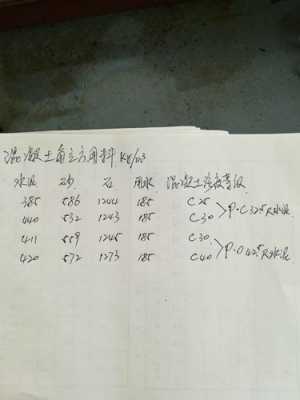 混凝土每立方用料 Kg/m3
水泥 砂 石 用水 混凝土强度等级
385 586 1244 185 C25
440 532 1243 185 C30 >P·C32.5R水泥
411 559 1245 185 C30
420 572 1273 185 C40 >P·O42.5R水泥